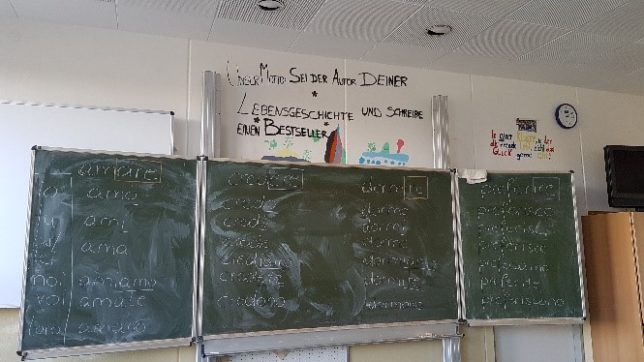 Unser Motto: Sei der Autor Deiner
Lebensgeschichte und schreibe
einen *Bestseller*
amare
io amo
tu ami
ama
noi amiamo
voi amate
loro amano
credere
credo
credi
crede
crediamo
credete
credono
dormire
dormo
dormi
dorme
dormiamo
preferire
preferisco
preferisci
preferisce
preferiamo
preferite
preferiscono